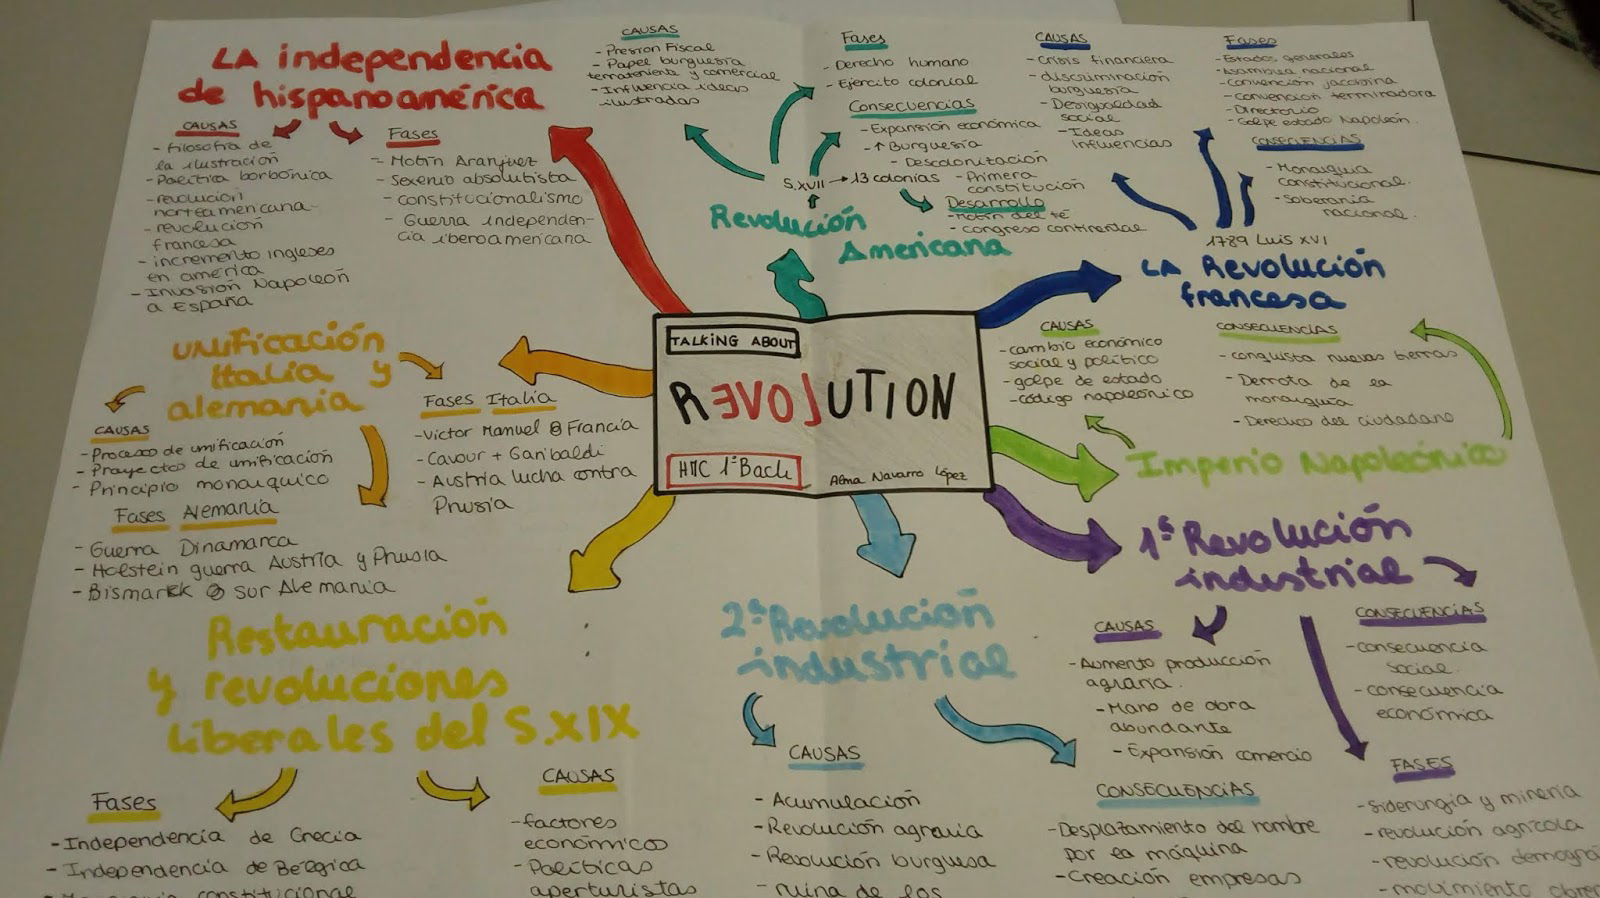 LA independencia
de hispanoamérica
CAUSAS
- Filosofía de
la ilustración
- Política borbónica
- revolución
norteamericana
- revolución
francesa
- incremento ingleses
en américa
- Invasión Napoleón
a España
Fases
- Motín Aranjuez
- Sexenio absolutista
- constitucionalismo
- Guerra independen-
cia iberoamericana
CAUSAS
- Presión Fiscal
- Papel burguesía
terrateniente y comercial
- Influencia ideas
ilustradas
Fases
- Derecho humano
- Ejercito colonial
Consecuencias
- Expansión económica
- ↑ Burguesía
- Descolonización
- Primera
constitución
S.XVII → 13 colonias
Desarrollo
- Motín del té
- Congreso continental
Revolución
Americana
CAUSAS
- Crisis financiera
- discriminación
burguesía
- Desigualdad
social
- Ideas
influencias
Fases
- Estados generales
- Asamblea nacional
- Convención jacobina
- Convención termidora
- Directorio
- Golpe estado Napoleón.
CONSECUENCIAS
- Monarquía
constitucional.
- soberanía
nacional.
1789 Luis XVI
LA Revolución
francesa
TALKING ABOUT
REVOLUTION
HMC 1º Bach
Alma Navarro López
unificación
Italia y
alemania
CAUSAS
- Proceso de unificación
- Proyectos de unificación
- Principio monárquico
Fases Italia
- Victor Manuel Francia
- Cavour + Garibaldi
- Austria lucha contra
Prusia
Fases Alemania
- Guerra Dinamarca
- Holstein guerra Austria y Prusia
- Bismarck sur Alemania
CAUSAS
- cambio económico
social y político
- golpe de estado
- código napoleónico
CONSECUENCIAS
- conquista nuevas tierras
- Derrota de la
monarquía
- Derechos del ciudadano
Imperio Napoleónico
1ª Revolución
industrial
CAUSAS
- Aumento producción
agraria.
- Mano de obra
abundante
- Expansión comercio
CONSECUENCIAS
- consecuencia
social.
- consecuencia
económica
FASES
- siderurgia y minería
- revolución agrícola
- revolución demográ
- movimiento obre
Restauración
y revoluciones
liberales del S.XIX
Fases
- Independencia de Grecia
- Independencia de Bélgica
constitucional
CAUSAS
- factores
económicos
- Políticas
aperturistas
2ª Revolución
industrial
CAUSAS
- Acumulación
- Revolución agraria
- Revolución burguesa
- ruina de los
CONSECUENCIAS
- Desplazamiento del hombre
por la máquina
- Creación empresas